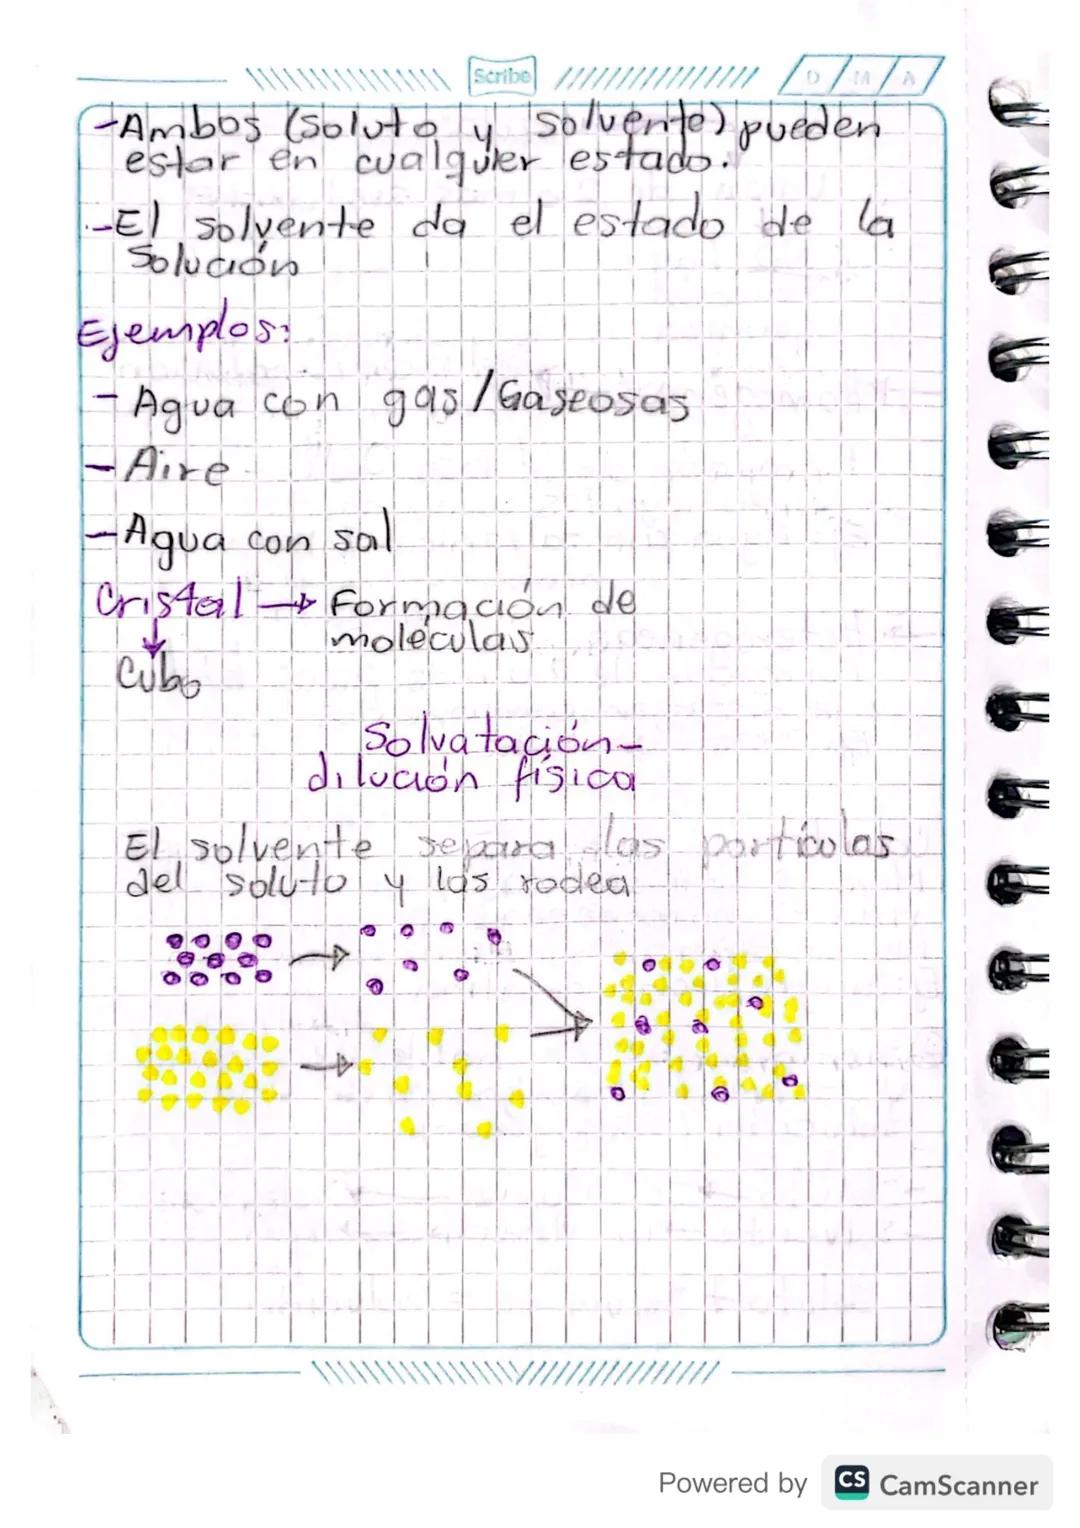 Scribe
D M A
-Ambos (soluto y solvente) pueden
estar en cualquier estado.
-El solvente da el estado de la
Solución
Ejemplos:
- Agua con gas/Gaseosas
- Aire
- Agua con sal
Cristal → Formación de
moléculas
↓
Cubo
Solvatación-
dilución física
El solvente separa las partículas
del soluto y las rodea
Powered by CS CamScanner